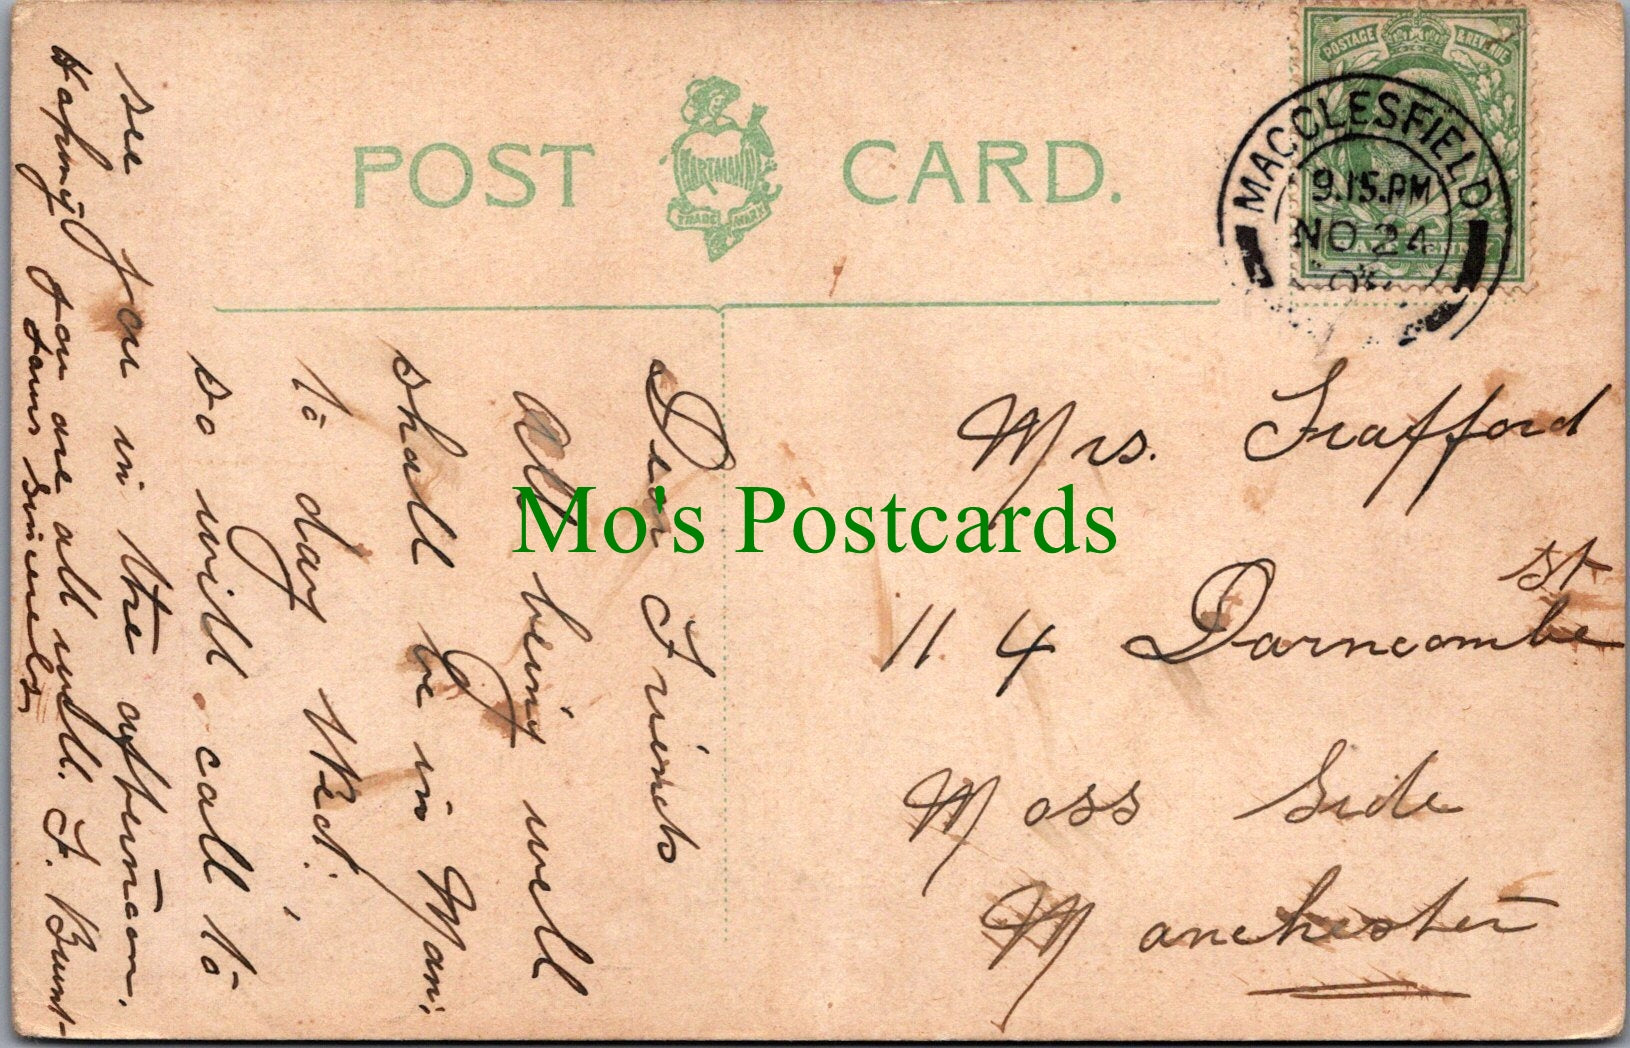 POST CARD.
HARTMANN
TRADE MARK
POSTAGE & REVENUE
HALF PENNY
MACCLESFIELD
9.15.PM
NO 24
Mrs. Trafford
114 Darncombe st
Moss Side
Manchester
Dear Friends
All being well
shall be in Man:
to day Wed.
so will call to
see you in the afternoon.
Hoping you are all well. J. Bunt-
Yours Sincerely
Mo's Postcards